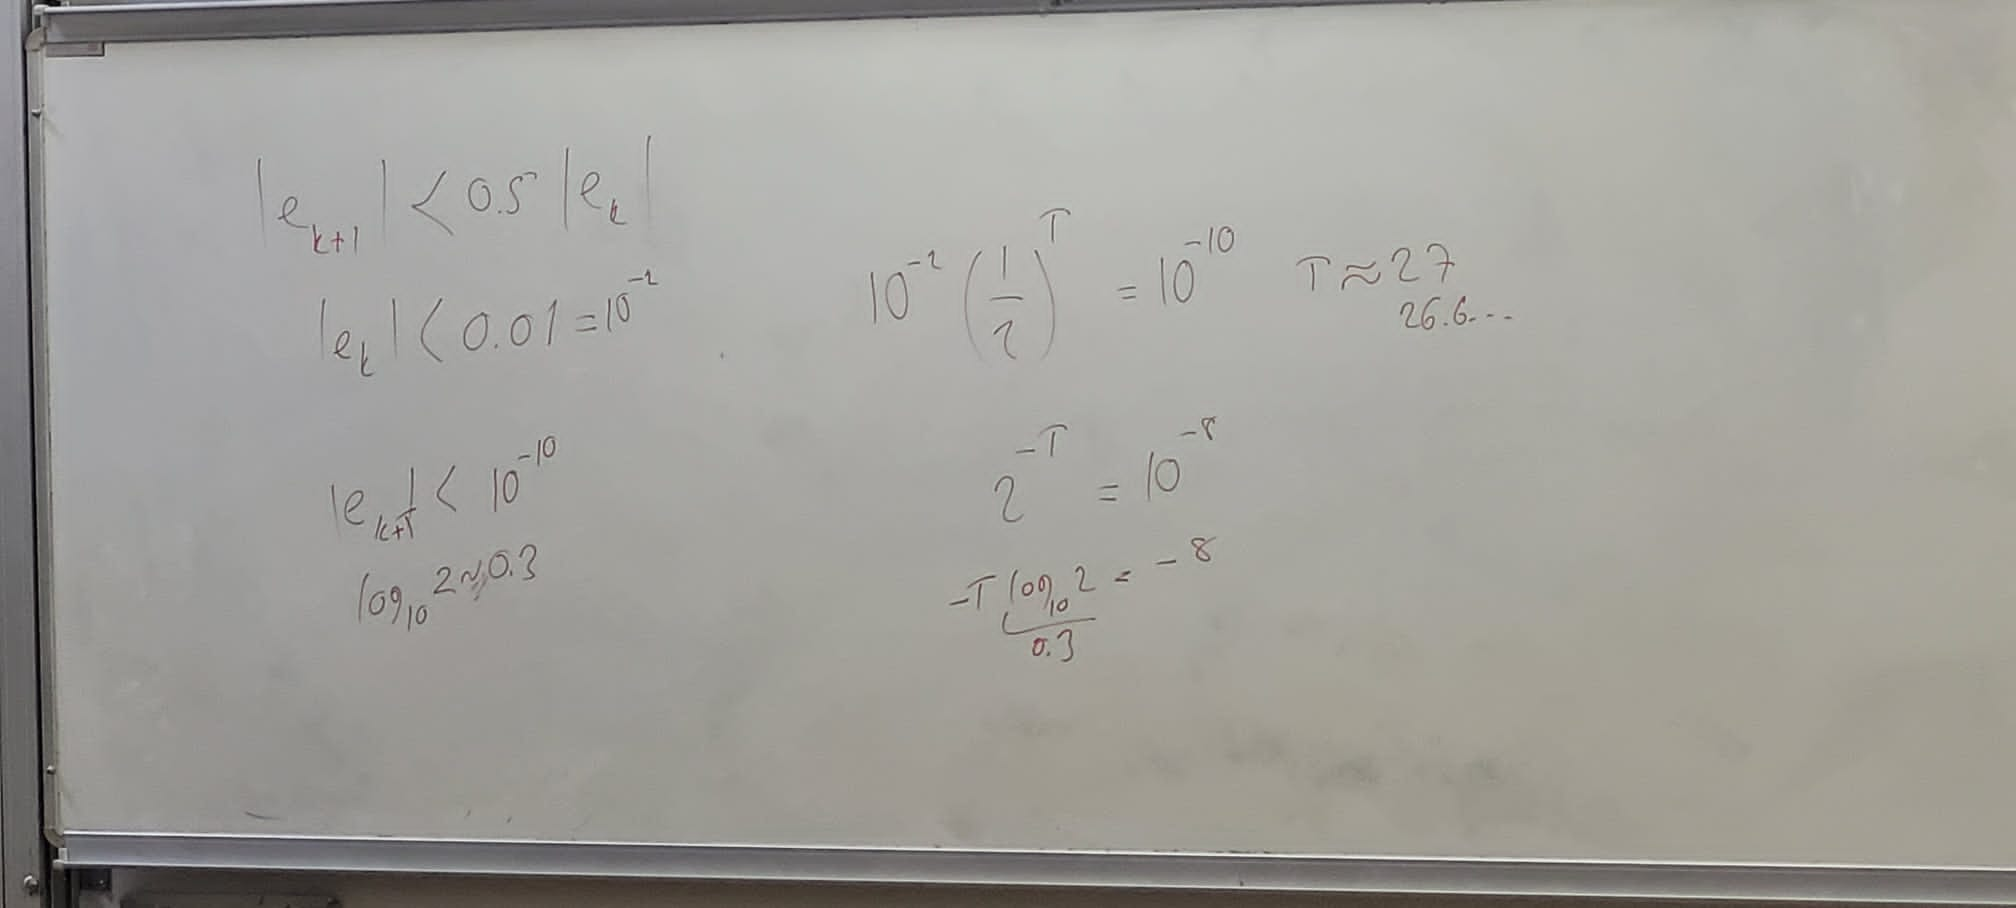 |e_{k+1}| < 0.5 |e_k|
|e_k| < 0.01 = 10^{-2}
|e_{k+T}| < 10^{-10}
log_{10} 2 ≈ 0.3
10^{-2} (1/2)^T = 10^{-10} T ≈ 27
26.6...
2^{-T} = 10^{-8}
-T log_{10} 2 = -8
0.3